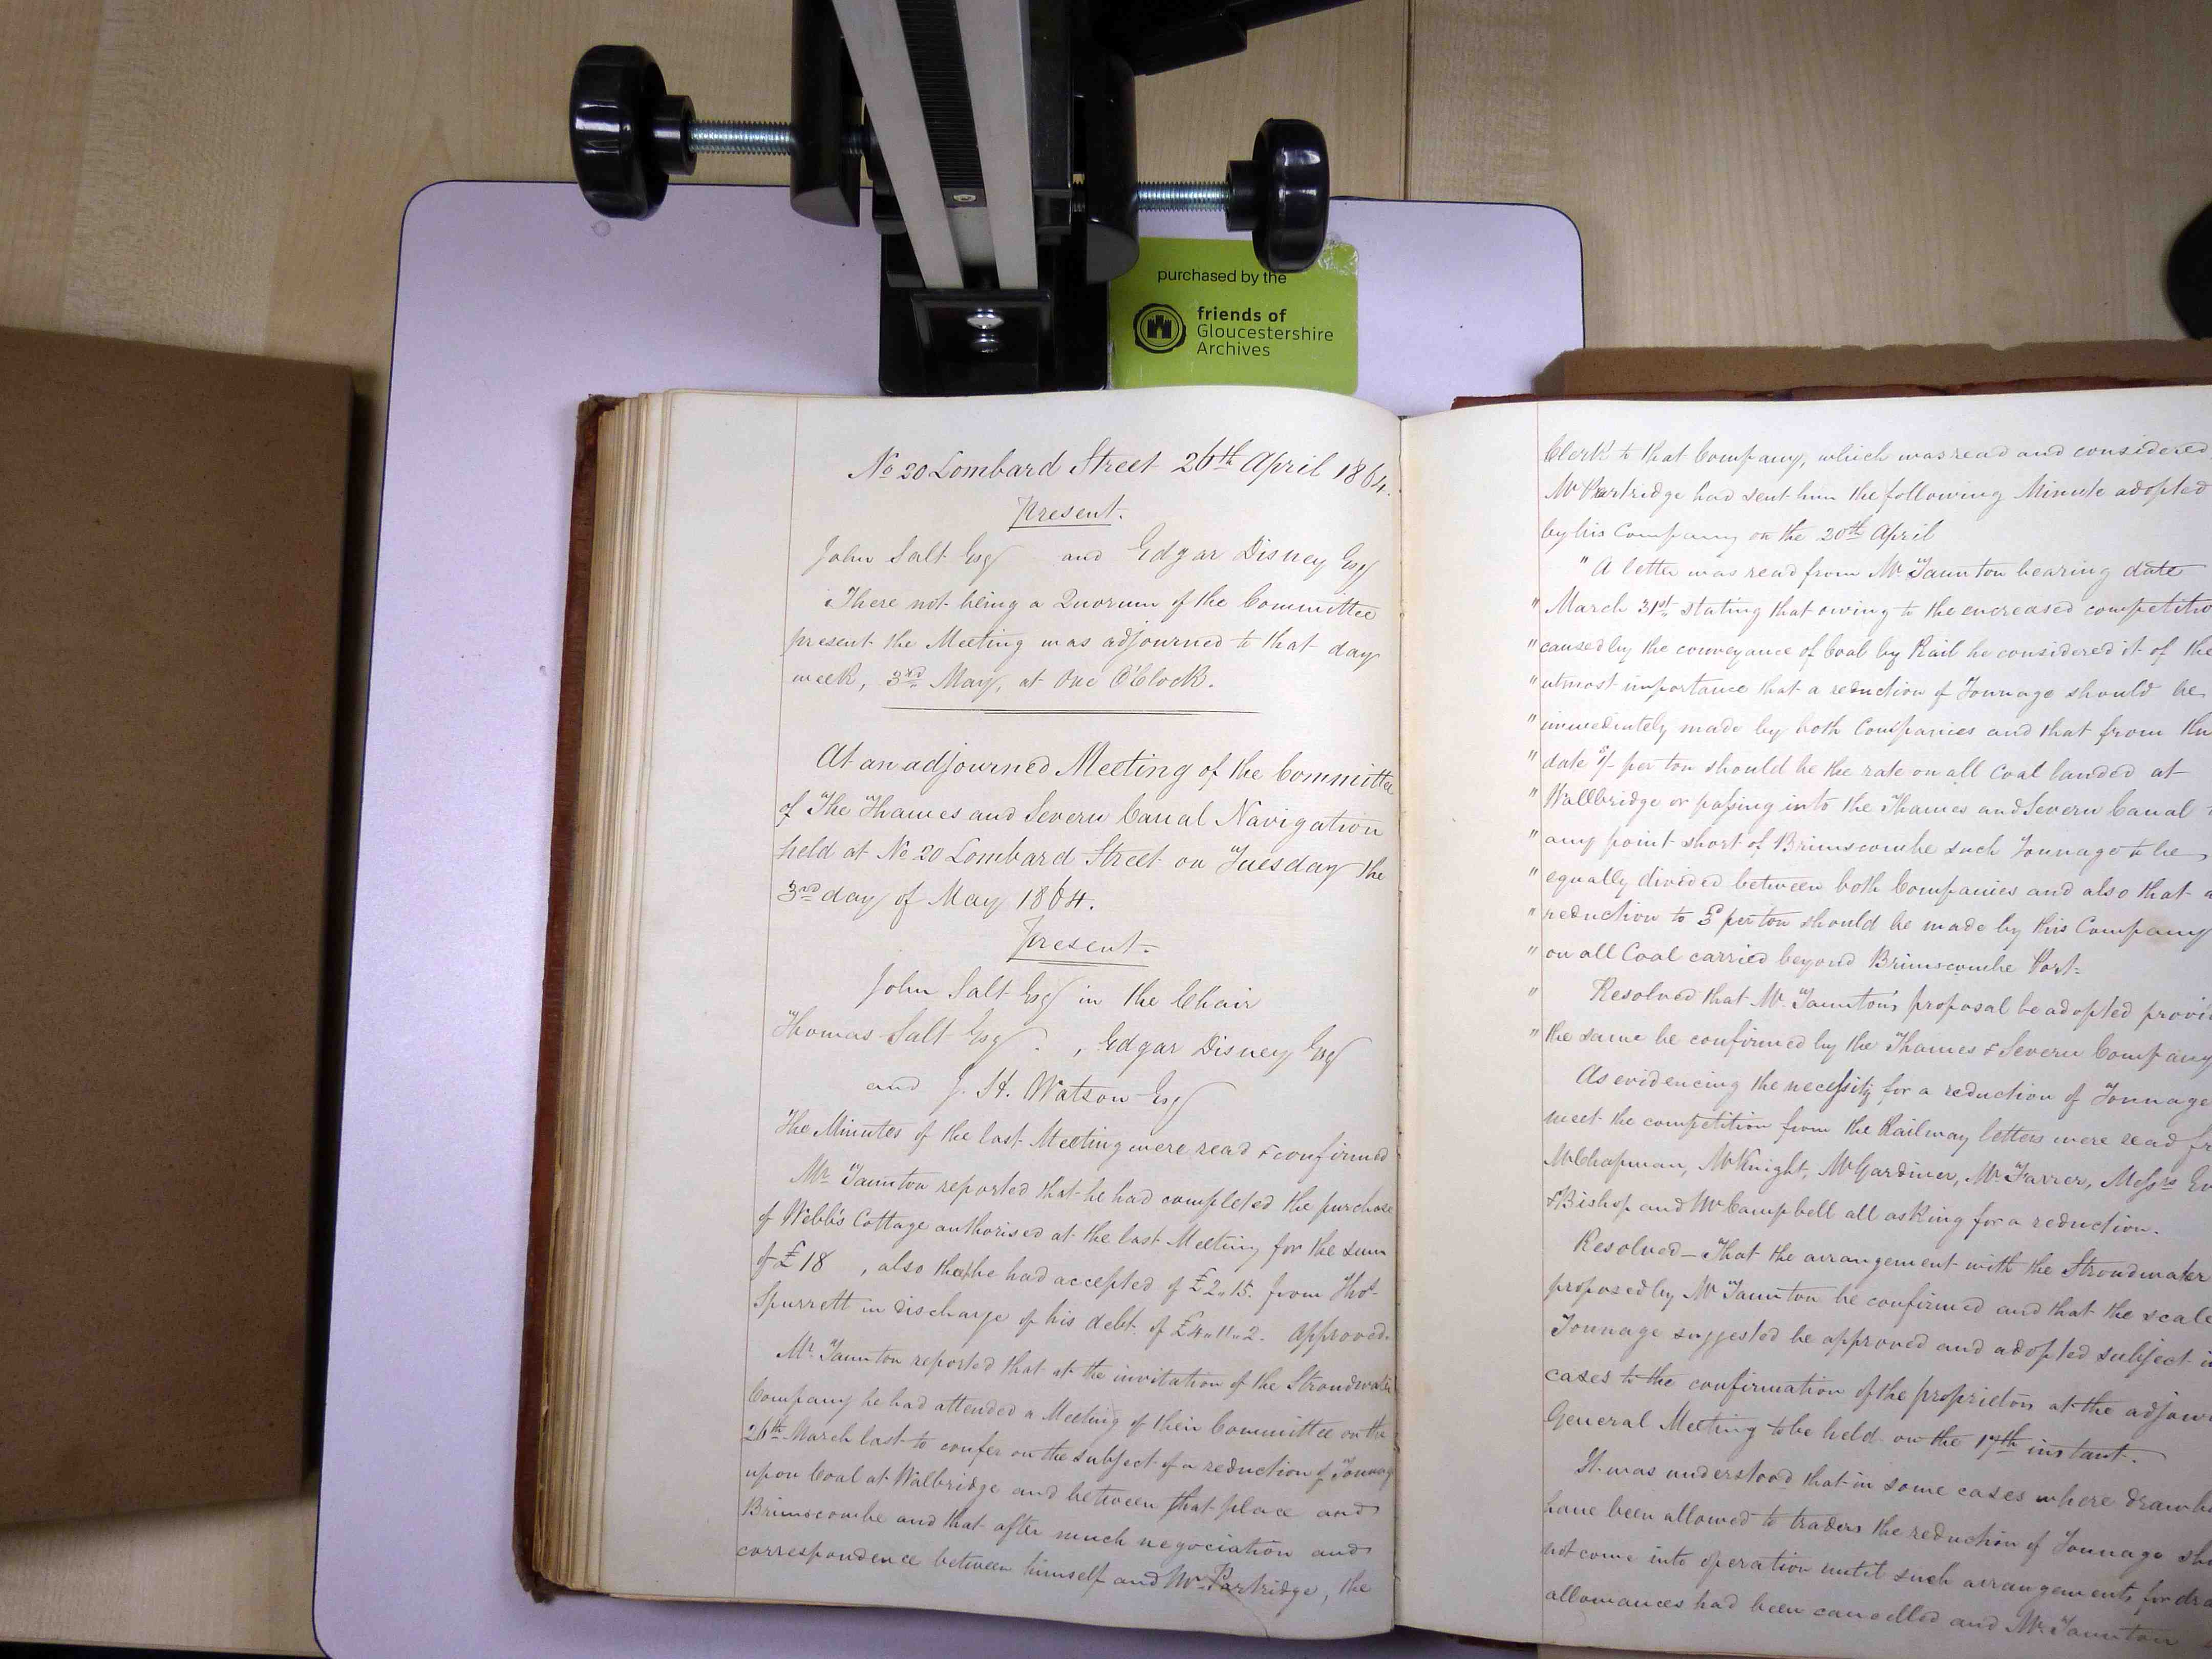 purchased by the
friends of
Gloucestershire
Archives
No 20 Lombard Street 26th April 1864.
Present.
John Salt Esq and Edgar Disney Esq
There not being a Quorum of the Committee
present the Meeting was adjourned to that day
week, 3rd May, at One O'Clock.
At an adjourned Meeting of the Committee
of The Thames and Severn Canal Navigation
held at No 20 Lombard Street on Tuesday the
3rd day of May 1864.
Present.
John Salt Esq in the Chair
Thomas Salt Esq. , Edgar Disney Esq
and J. H. Watson Esq
The Minutes of the last Meeting were read & confirmed
Mr Taunton reported that he had completed the purchase
of Webb's Cottage authorised at the last Meeting for the sum
of £18 , also that he had accepted of £2,,15. from Thos
Spurrett in discharge of his debt of £4,,11,,2. Approved.
Mr Taunton reported that at the invitation of the Stroudwater
Company he had attended a Meeting of their Committee on the
26th March last to confer on the subject of a reduction of Tonnage
upon Coal at Walbridge and between that place and
Brimscombe and that after much negociation and
correspondence between himself and Mr Partridge, the
Clerk to that Company, which was read and considered
Mr Partridge had sent him the following Minute adopted
by his Company on the 20th April
" A letter was read from Mr Taunton bearing date
" March 31st stating that owing to the encreased competitio
" caused by the conveyance of Coal by Rail he considered it of the
" utmost importance that a reduction of Tonnage should be
" immediately made by both Companies and that from the
" date 1/- per ton should be the rate on all Coal landed at
" Wallbridge or passing into the Thames and Severn Canal
" any point short of Brimscombe such Tonnage to be
" equally divided between both Companies and also that a
" reduction to per ton should be made by this Company
" on all Coal carried beyond Brimscombe Port.
" Resolved that Mr Taunton's proposal be adopted provi
" the same be confirmed by the Thames & Severn Company
As evidencing the necessity for a reduction of Tonnage
meet the competition from the Railway letters were read fr
Mr Chapman, Mr Knight, Mr Gardiner, Mr Farrer, Messrs
& Bishop and Mr Campbell all asking for a reduction.
Resolved - That the arrangement with the Stroudwater
proposed by Mr Taunton be confirmed and that the scale
Tonnage suggested be approved and adopted subject i
cases to the confirmation of the proprietors at the adjour
General Meeting to be held on the 17th instant.
It was understood that in some cases where drawba
have been allowed to traders the reduction of Tonnage sho
not come into operation until such arrangements for dra
allowances had been cancelled and Mr Taunton